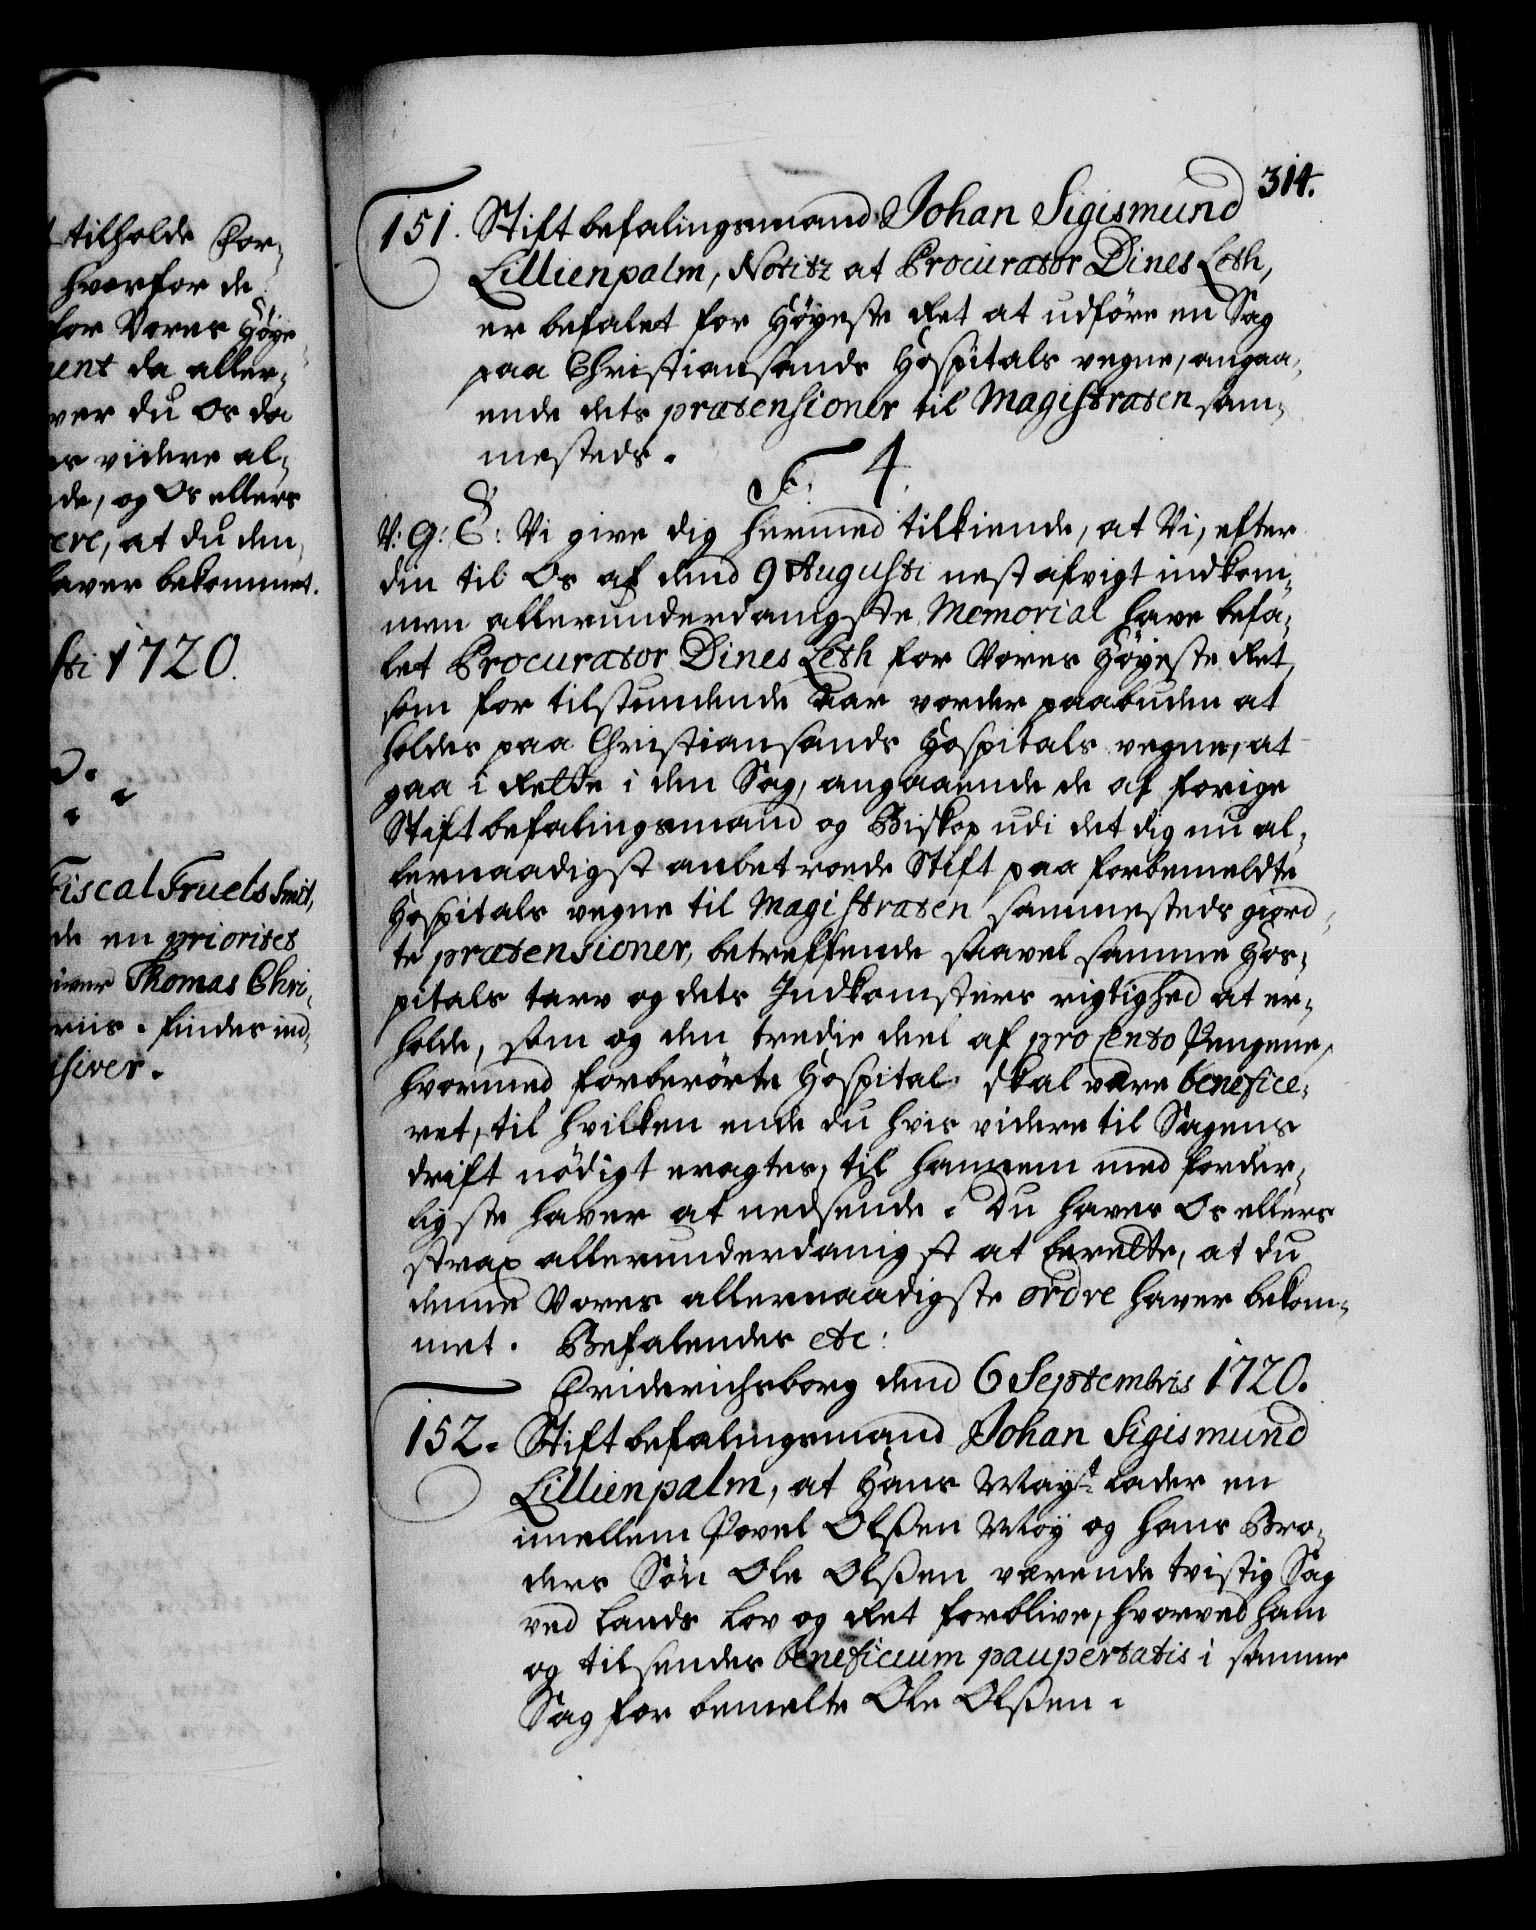 tilholde for-
hvorfor de
for Vores Høye
ent da aller-
ver du Os da
er videre al-
de, og Os ellers
ere, at du den
haver bekommet.
sti 1720.
Fiscal Truels Smit,
de en prioritet
iver Thomas Chri-
riis. findes ind-
siver.
314.
151. Stiftbefalingsmand Johan Sigismund
Lillienpalm, Notitz at Procurator Dines Leth,
er befalet for Høyeste Ret at udföre en Sag
paa Christiansands Hospitals vegne, angaa-
ende dets prætensioner til Magistraten sam-
mesteds.
F. 4.
V: G: T: Vi give dig hermed tilkiende, at Vi, efter
din til Os af dend 9 Augusti nest afvigt indkom-
men allerunderdanigste Memorial have befa-
let Procurator Dines Leth for Vores Høyeste Ret,
som for tilstundende Aar vorder paabuden at
holdes paa Christiansands Hospitals vegne, at
gaa i Rette i den Sag, angaaende de af forige
Stiftbefalingsmand og Biskop udi det dig nu al-
lernaadigst anbetroede Stift paa forbemeldte
Hospitals vegne til Magistraten sammesteds giord-
te prætensioner, betreffende saavel samme Hos-
pitals tarv og dets Indkomsters rigtighed at er-
holde, som og den tredie deel af pro Cento Pengene,
hvormed forberörte Hospital skal være benefice-
ret, til hvilken ende du hvis videre til Sagens
drift nödigt eragtes, til hannem med forder-
ligste haver at nedsende. Du haver Os ellers
strax allerunderdanigst at berette, at du
denne Vores allernaadigste ordre haver bekom-
met. Befalendes etc:
Friderichsborg dend 6 Septembris 1720.
152. Stiftbefalingsmand Johan Sigismund
Lillienpalm, at Hans Mayt. lader en
imellem Povel Olßen Moy og hans Bro-
ders Sön Ole Olßen værende tvistig Sag
ved Lands Lov og Ret forblive, hvorved ham
og tilsendes beneficium paupertatis i samme
Sag for bemelte Ole Olßen.